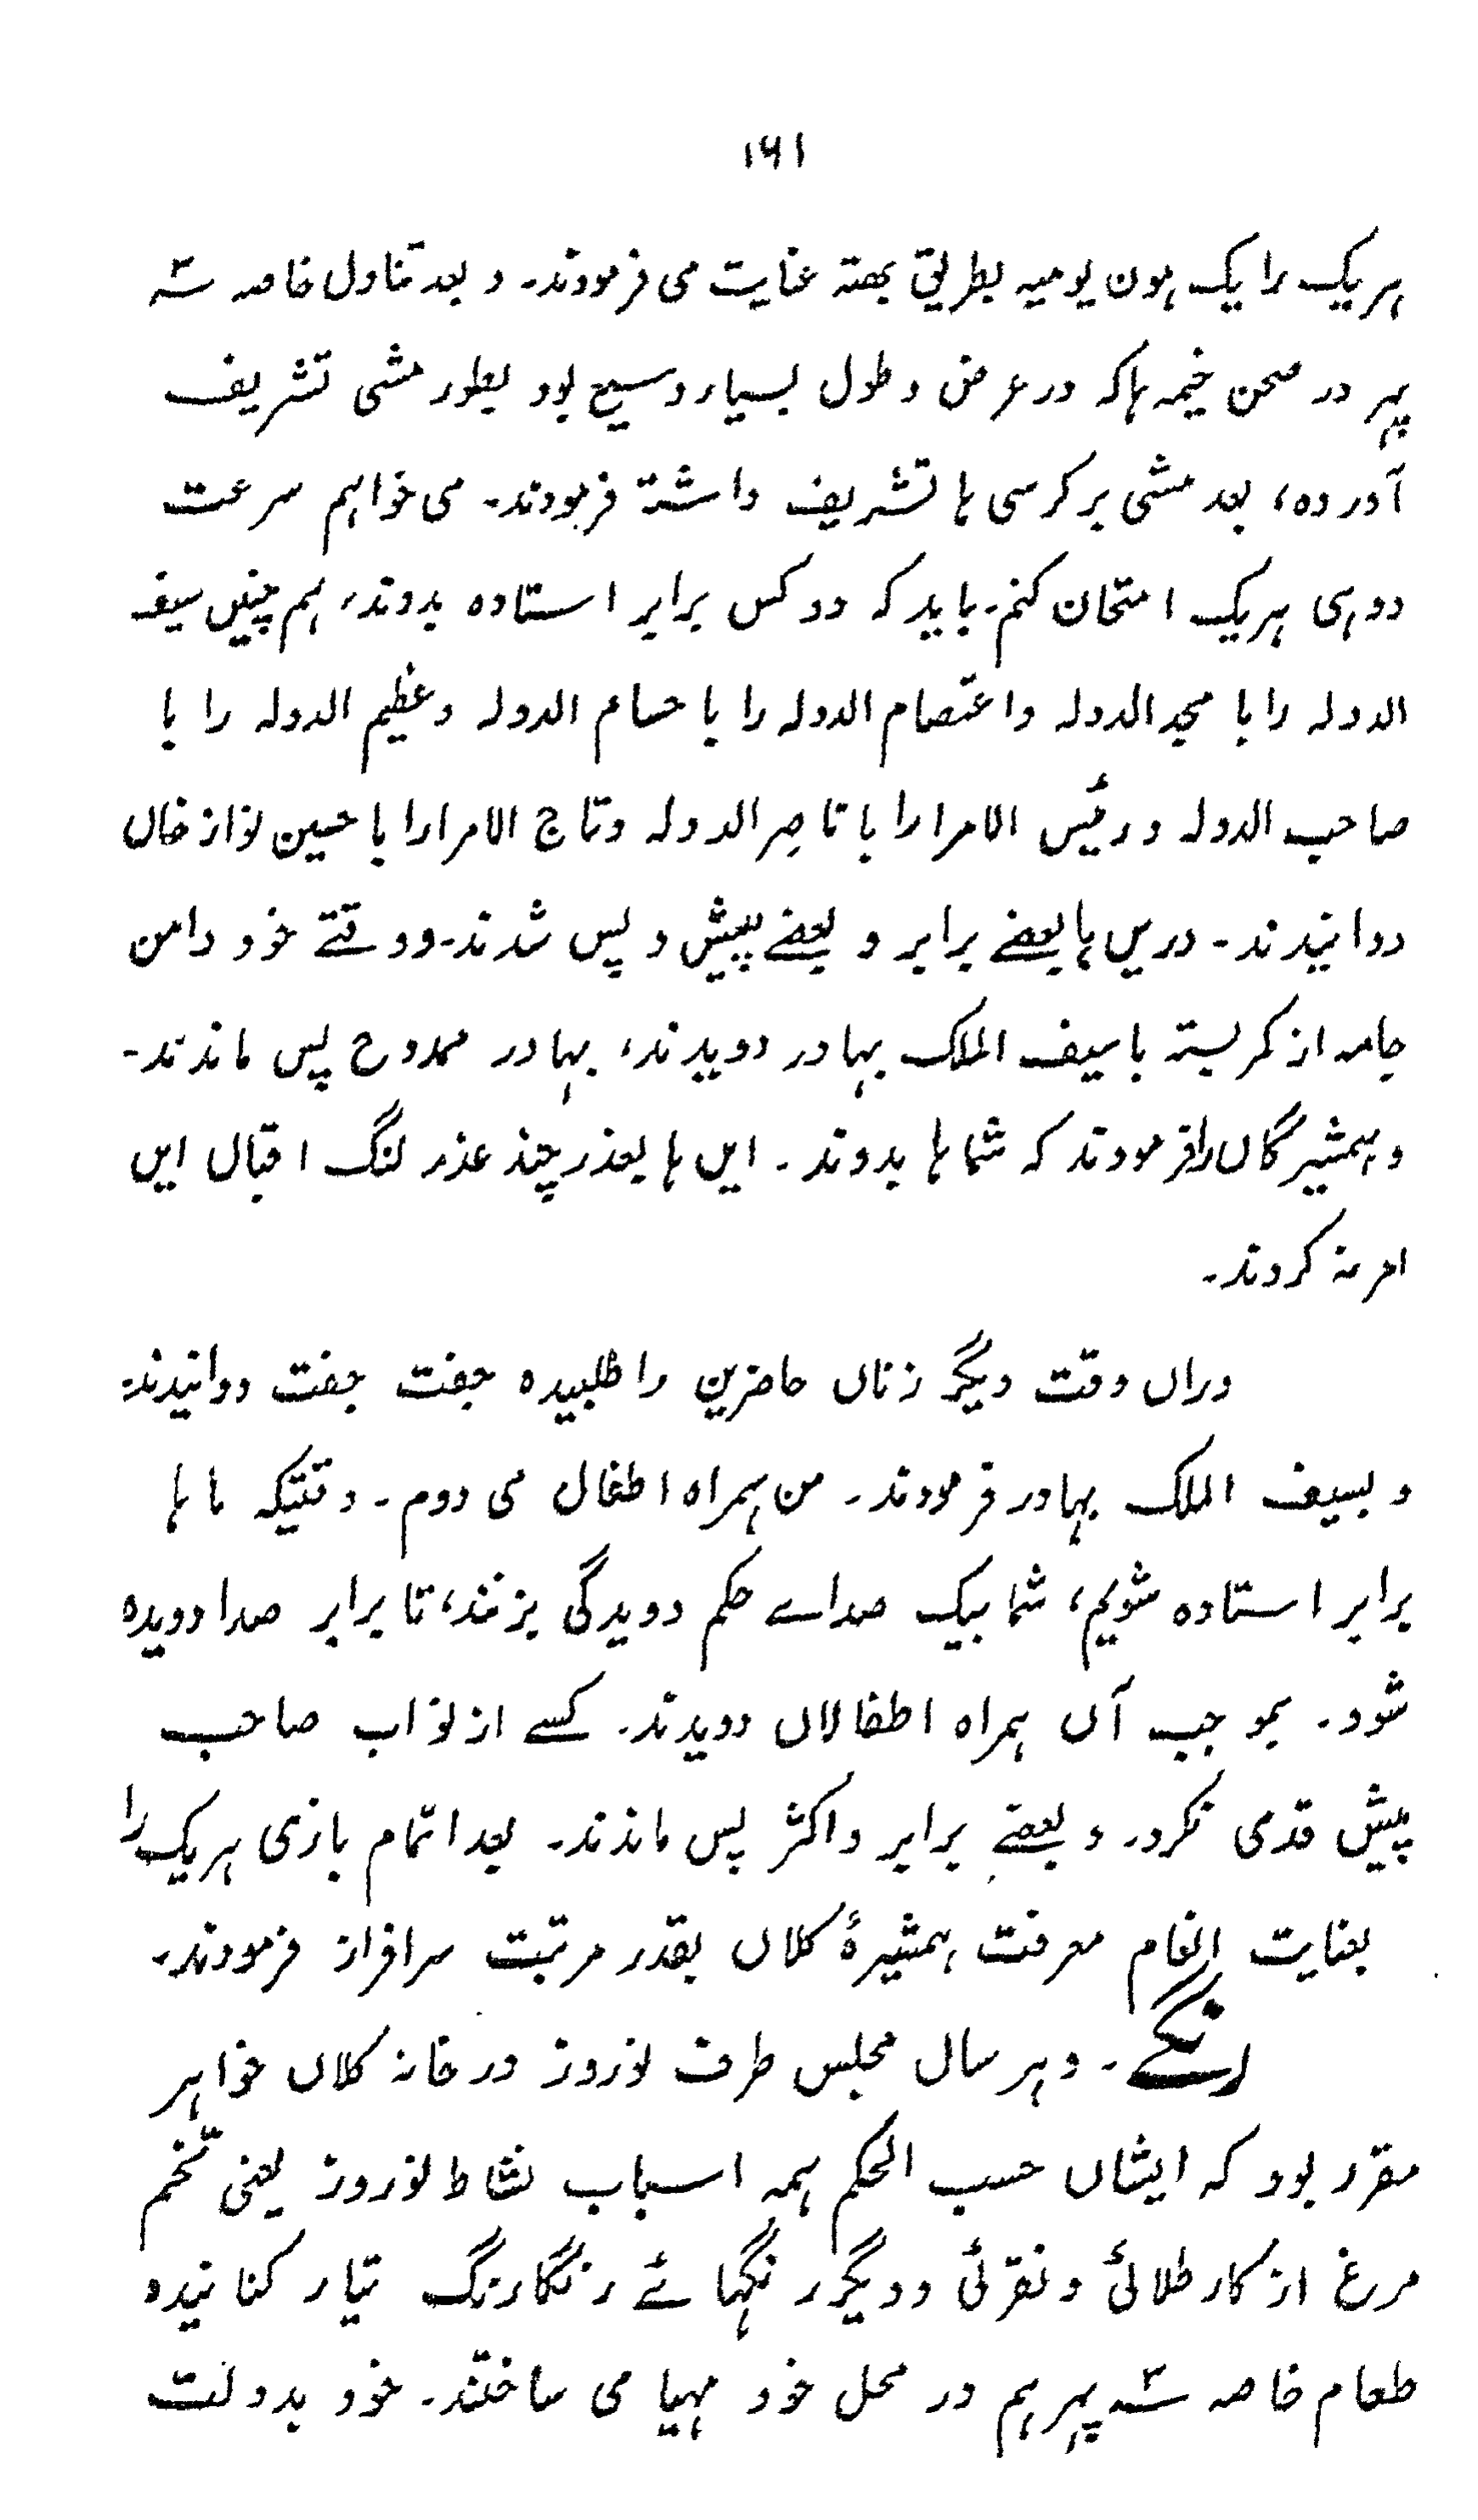 ۱۶۱
ہریک را یک ہون یومیہ بطریق بھتہ عنایت می فرمودند۔ و بعد تناول خاصہ سہ
پہر در صحن خیمہ ہا کہ در عرض و طول بسیار وسیع بود بطور مشی تشریف
آوردہ، بعد مشی بر کرسی ہا تشریف داشتہ فرمودند۔ می خواہم سرعت
دوہی ہریک امتحان کنم۔ باید کہ دو کس برابر استادہ بدوند، ہم چنیں سیف
الدولہ را با مجد الدولہ و اعتصام الدولہ را با حسام الدولہ و عظیم الدولہ را با
صاحب الدولہ و رئیس الامرا را با ناصر الدولہ و تاج الامرا را با حسین نواز خاں
دوانیدند۔ دریں ہا بعضے برابر و بعضے پیش و پس شدند۔ و وقتے خود دامن
جامہ از کمر بستہ با سیف الملک بہادر دویدند، بہادر ممدوح پس ماندند۔
و ہمشیرگاں را فرمودند کہ شما ہا بدوند۔ ایں ہا بعذر چند عذر لنگ اقبال ایں
امر نہ کردند۔
دراں وقت دیگر زناں حاضرین را طلبیدہ جفت جفت دوانیدند
و بسیف الملک بہادر فرمودند۔ من ہمراہ اطفال می دوم۔ وقتیکہ ما ہا
برابر استادہ شویم، شما بیک صداے حکم دویدگی بزنند، تا برابر صدا دویدہ
شود۔ بموجب آں ہمراہ اطفالاں دویدند۔ کسے از نواب صاحب
پیش قدمی نکرد۔ و بعضے برابر و اکثر پس ماندند۔ بعد اتمام بازی ہریک را
بعنایت انعام معرفت ہمشیرۂ کلاں بقدر مرتبت سرافراز فرمودند۔
رنگے۔ و ہر سال مجلس طرف نوروز در خانہ کلاں خواہر
مقرر بود کہ ایشاں حسب الحکم ہمہ اسباب نشاط نوروز یعنی تخم
مرغ از کار طلائی و نقرئی و دیگر رنگہائے رنگارنگ تیار کنانیدہ
طعام خاصہ سہ پہر ہم در محل خود مہیا می ساختند۔ خود بدولت